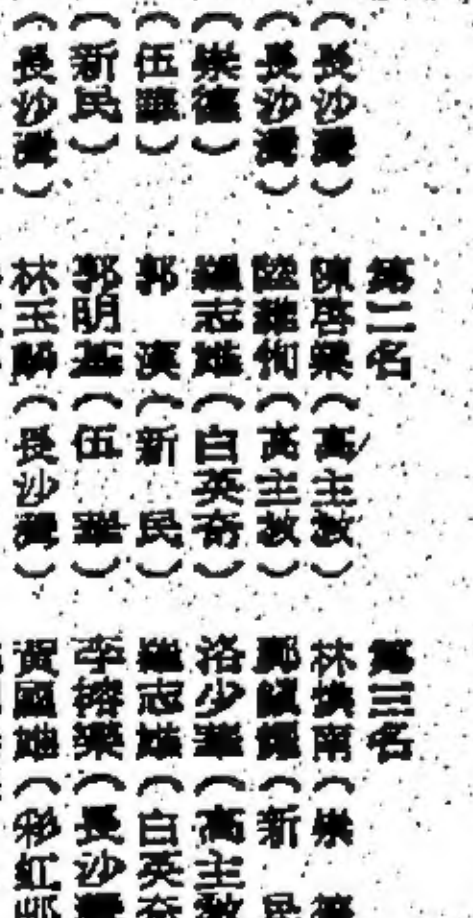 (長沙灣)
(長沙灣)
(崇德)
(伍華)
(新民)
(長沙灣)
第二名
陳啓(高主教)
陸恂(高主教)
羅志雄(白英奇)
郭漢(新民)
郭明基(伍華)
林玉麟(長沙灣)
第三名
林煥南(崇德
鄭(新民
洛少華(高主教
羅志雄(白英奇
李榕(長沙灣
國(彩虹邨